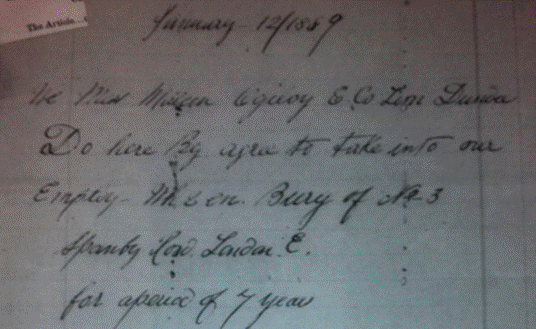 The Article
January 12/1889
We Miss Ogilvy & Co Dundee
Do here By agree to take into our
Employ Bury of No 3
Spanby Road London E.
for a period of 7 year